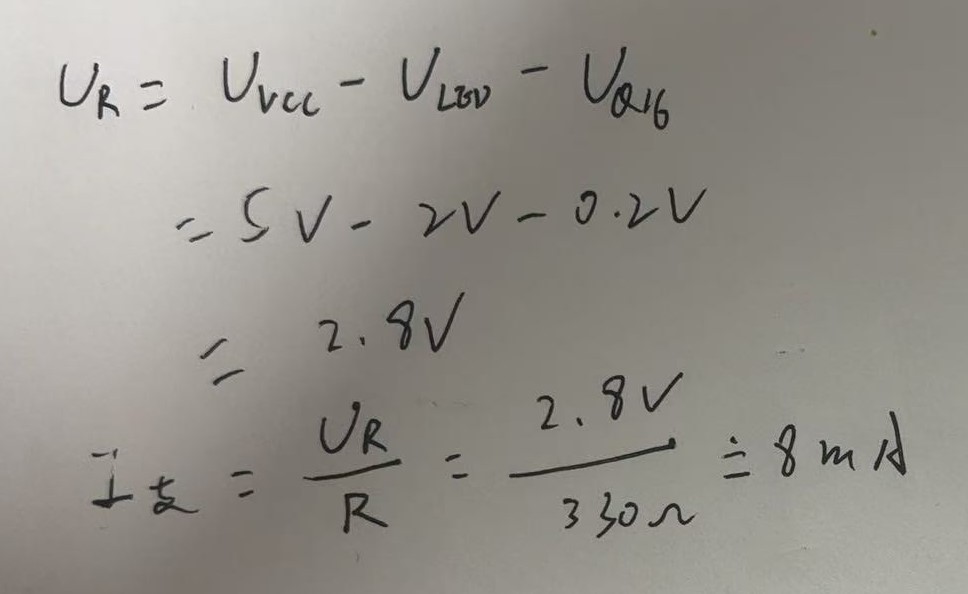 U_R = U_VCC - U_LED - U_Q16
= 5V - 2V - 0.2V
= 2.8V
I_支 = U_R / R = 2.8V / 330Ω ≐ 8mA